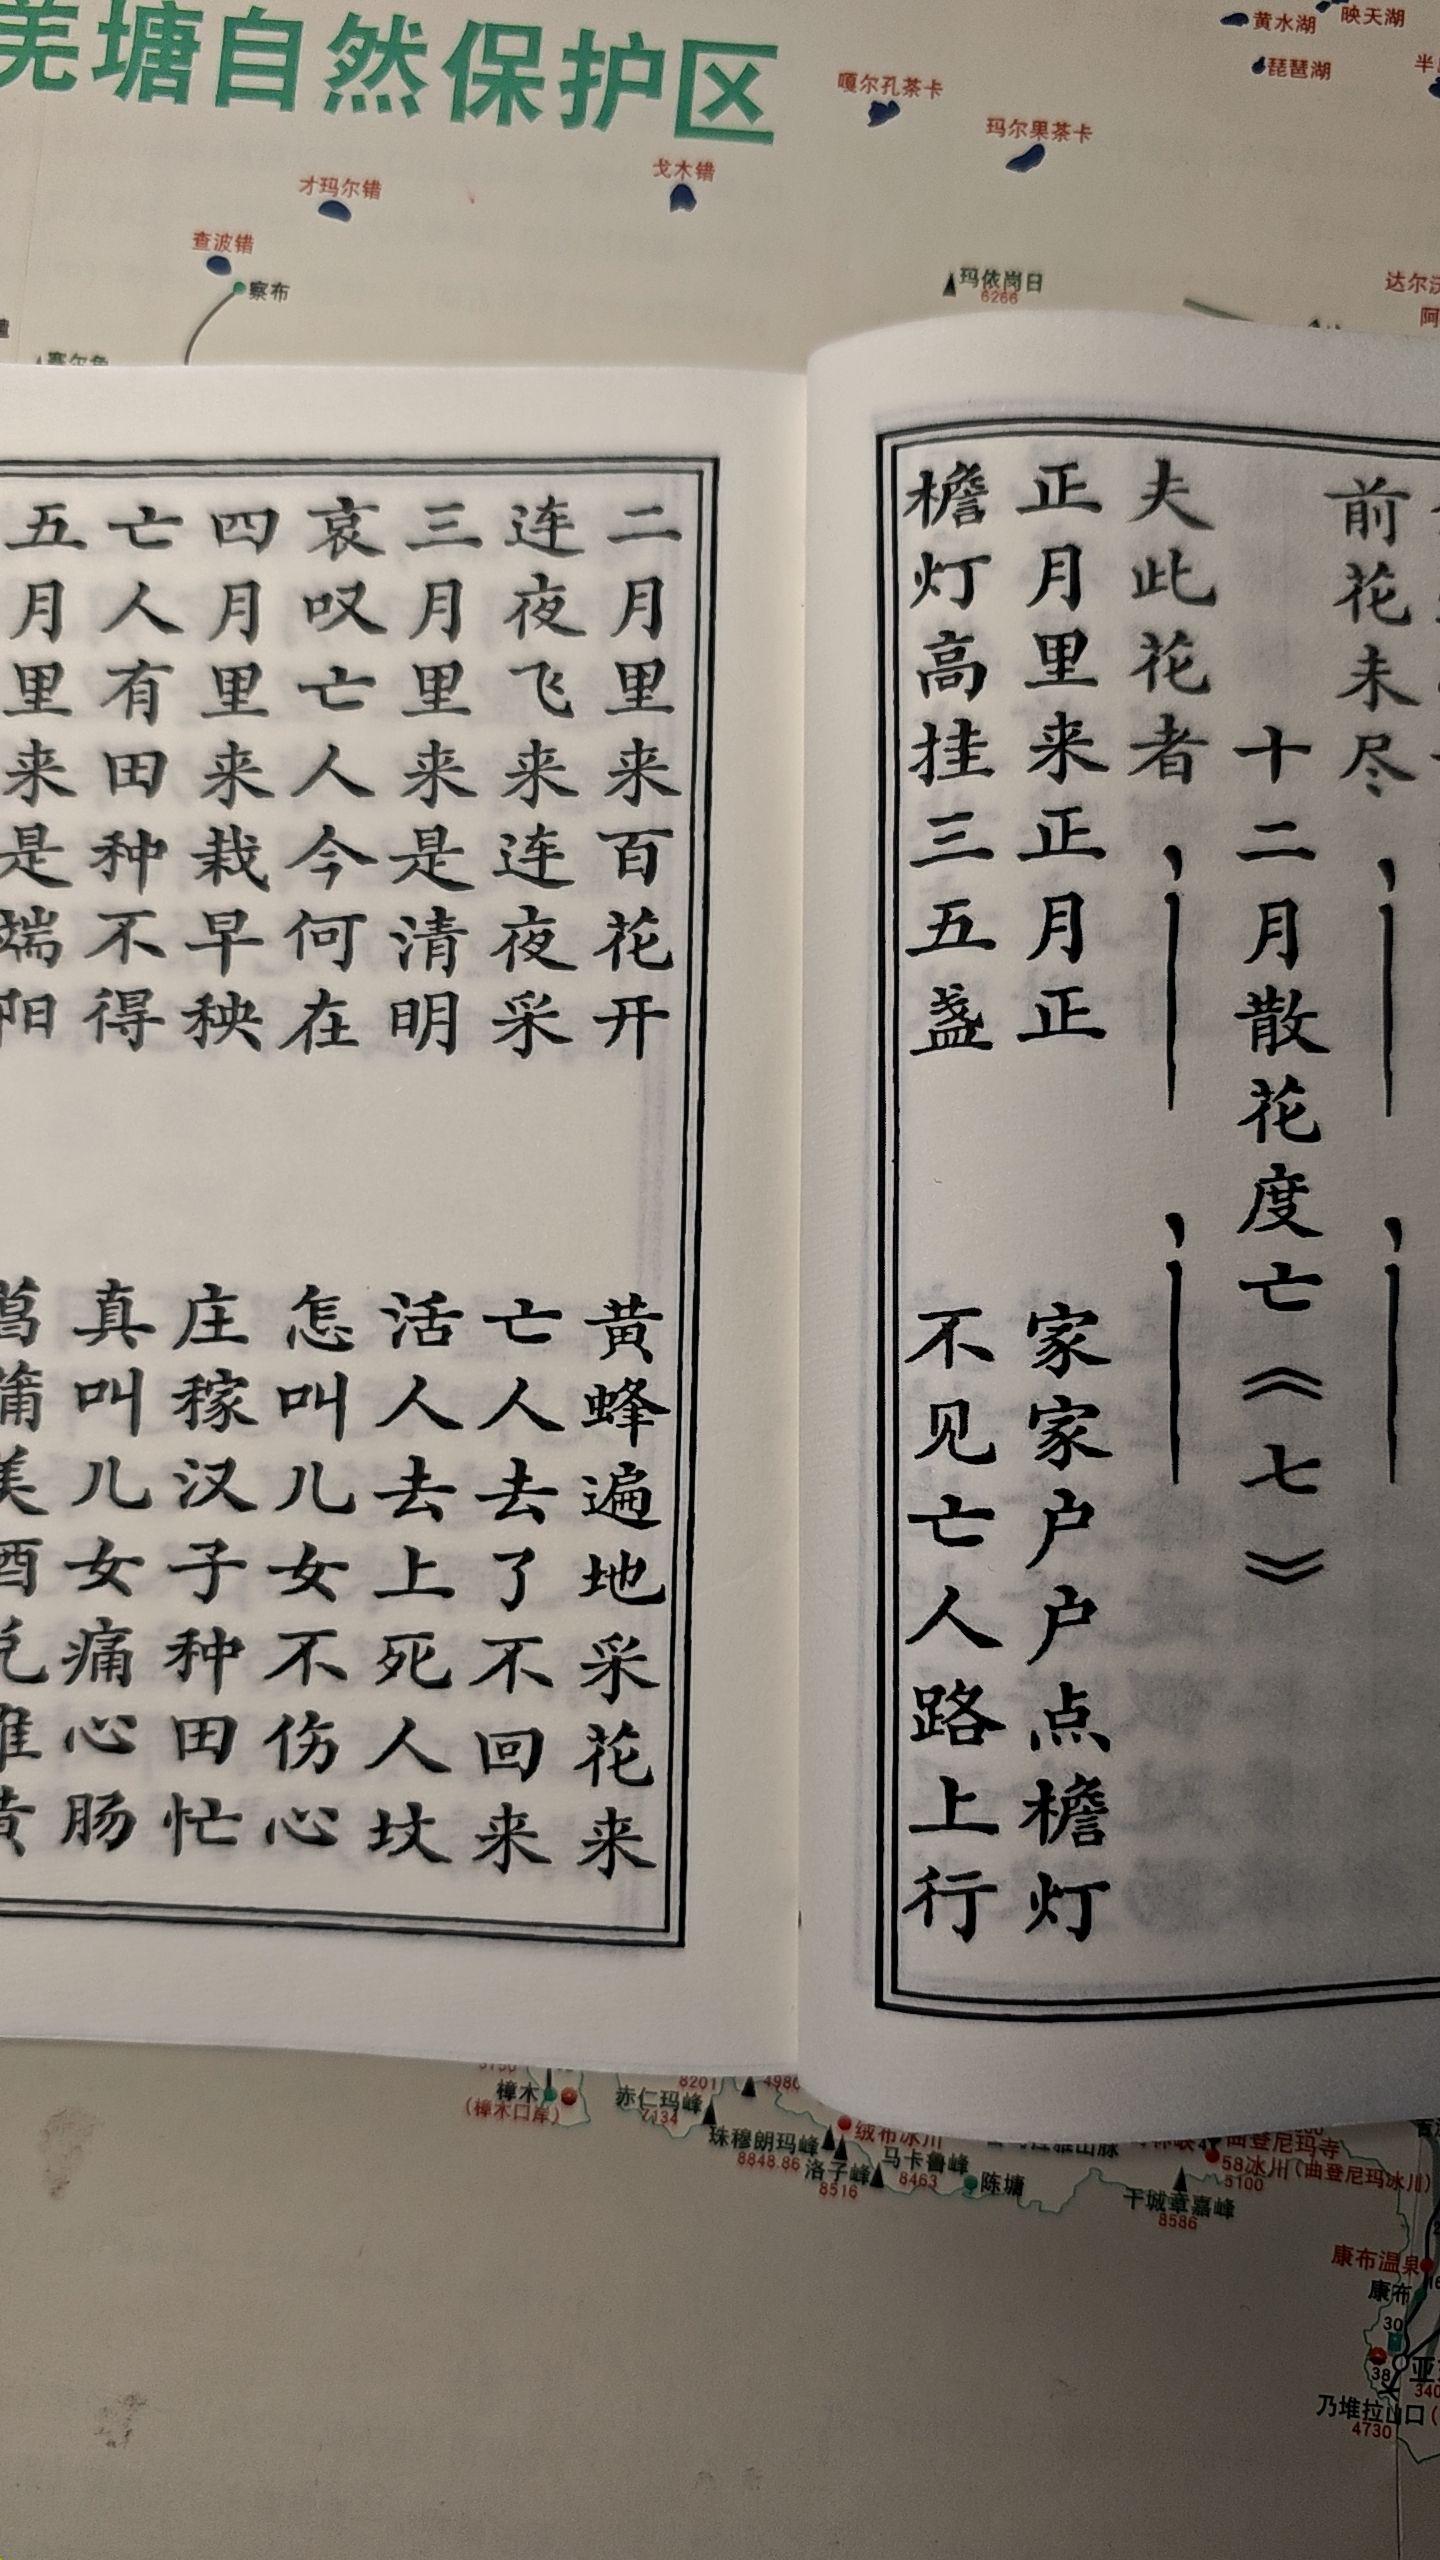 羌塘自然保护区
黄水湖
映天湖
琵琶湖
嘎尔孔茶卡
玛尔果茶卡
戈木错
才玛尔错
查波错
察布
玛依岗日
6266
达尔沃
前花未尽，——，——
十二月散花度亡《七》
夫此花者，——，——
正月里来正月正 家家户户点檐灯
檐灯高挂三五盏 不见亡人路上行
二月里来百花开 黄蜂遍地采花来
连夜飞来连夜采 亡人去了不回来
三月里来是清明 活人去上死人坟
哀叹亡人今何在 怎叫儿女不伤心
四月里来栽早秧 庄稼汉子种田忙
亡人有田种不得 真叫儿女痛心肠
五月里来是端阳 菖蒲美酒兑雄黄
樟木
(樟木口岸)
8201
赤仁玛峰
7134
珠穆朗玛峰
8848.86
洛子峰
8516
绒布冰川
马卡鲁峰
8463
陈塘
曲登尼玛寺
58冰川(曲登尼玛冰川)
5100
干城章嘉峰
8586
康布温泉
康布
30
38
乃堆拉山口
4730